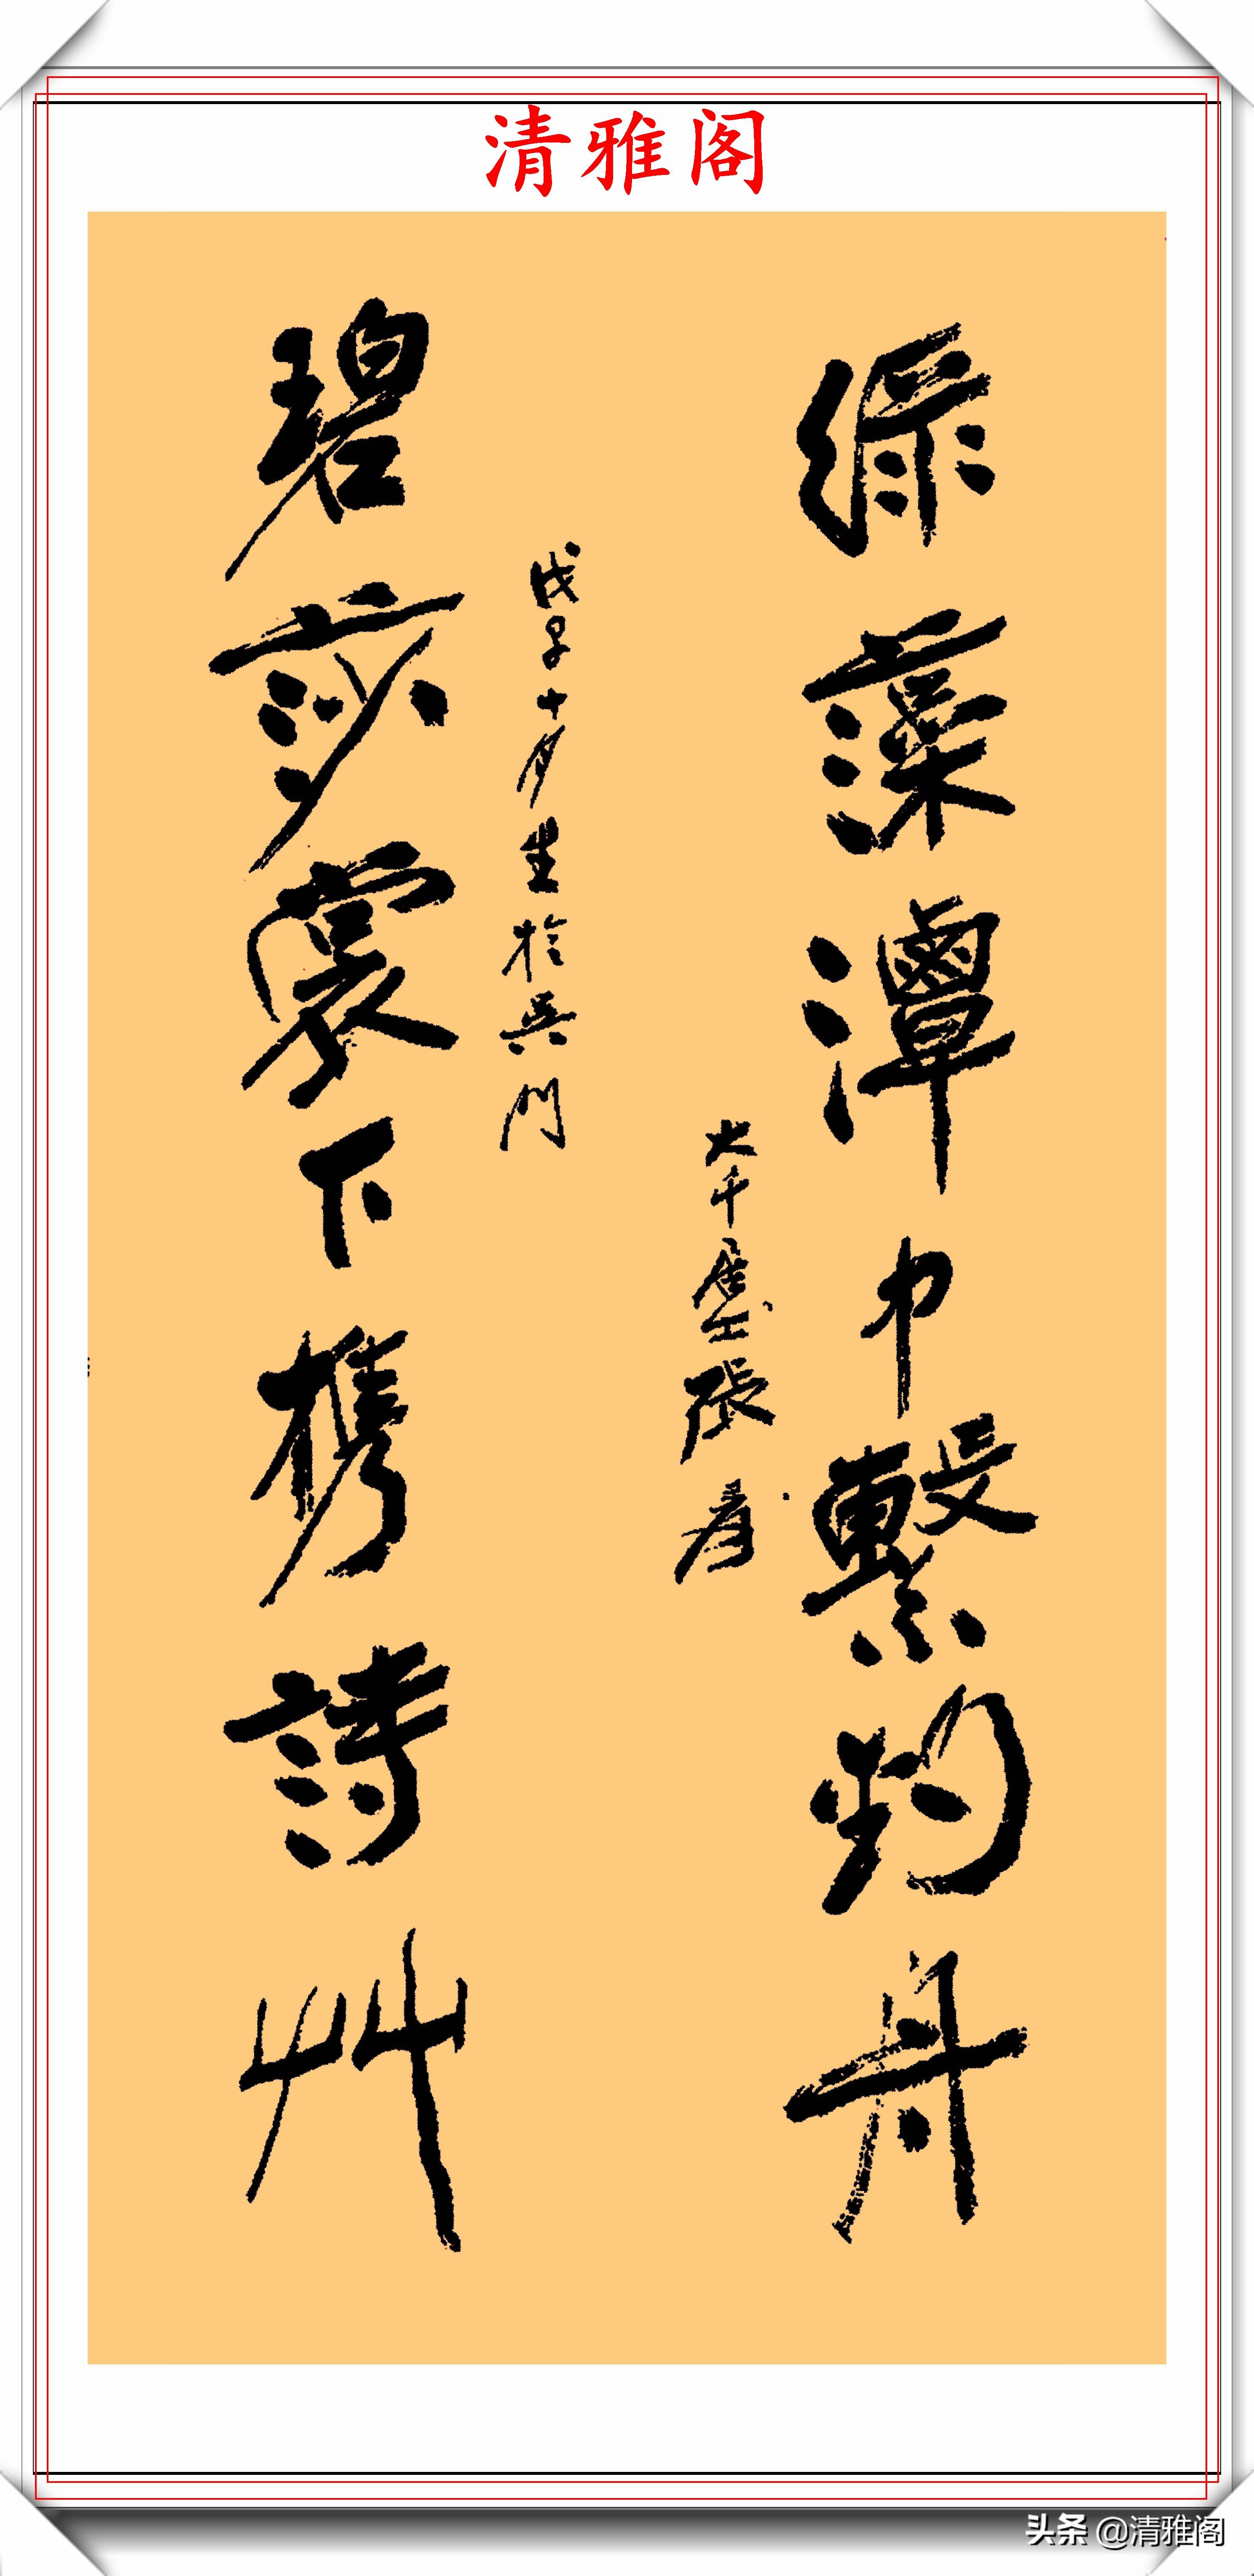 清雅阁
綠藻潭中繫釣舟
大千居士張爰
戊子十月於吳門
碧莎裳下携詩艸
头条 @清雅阁